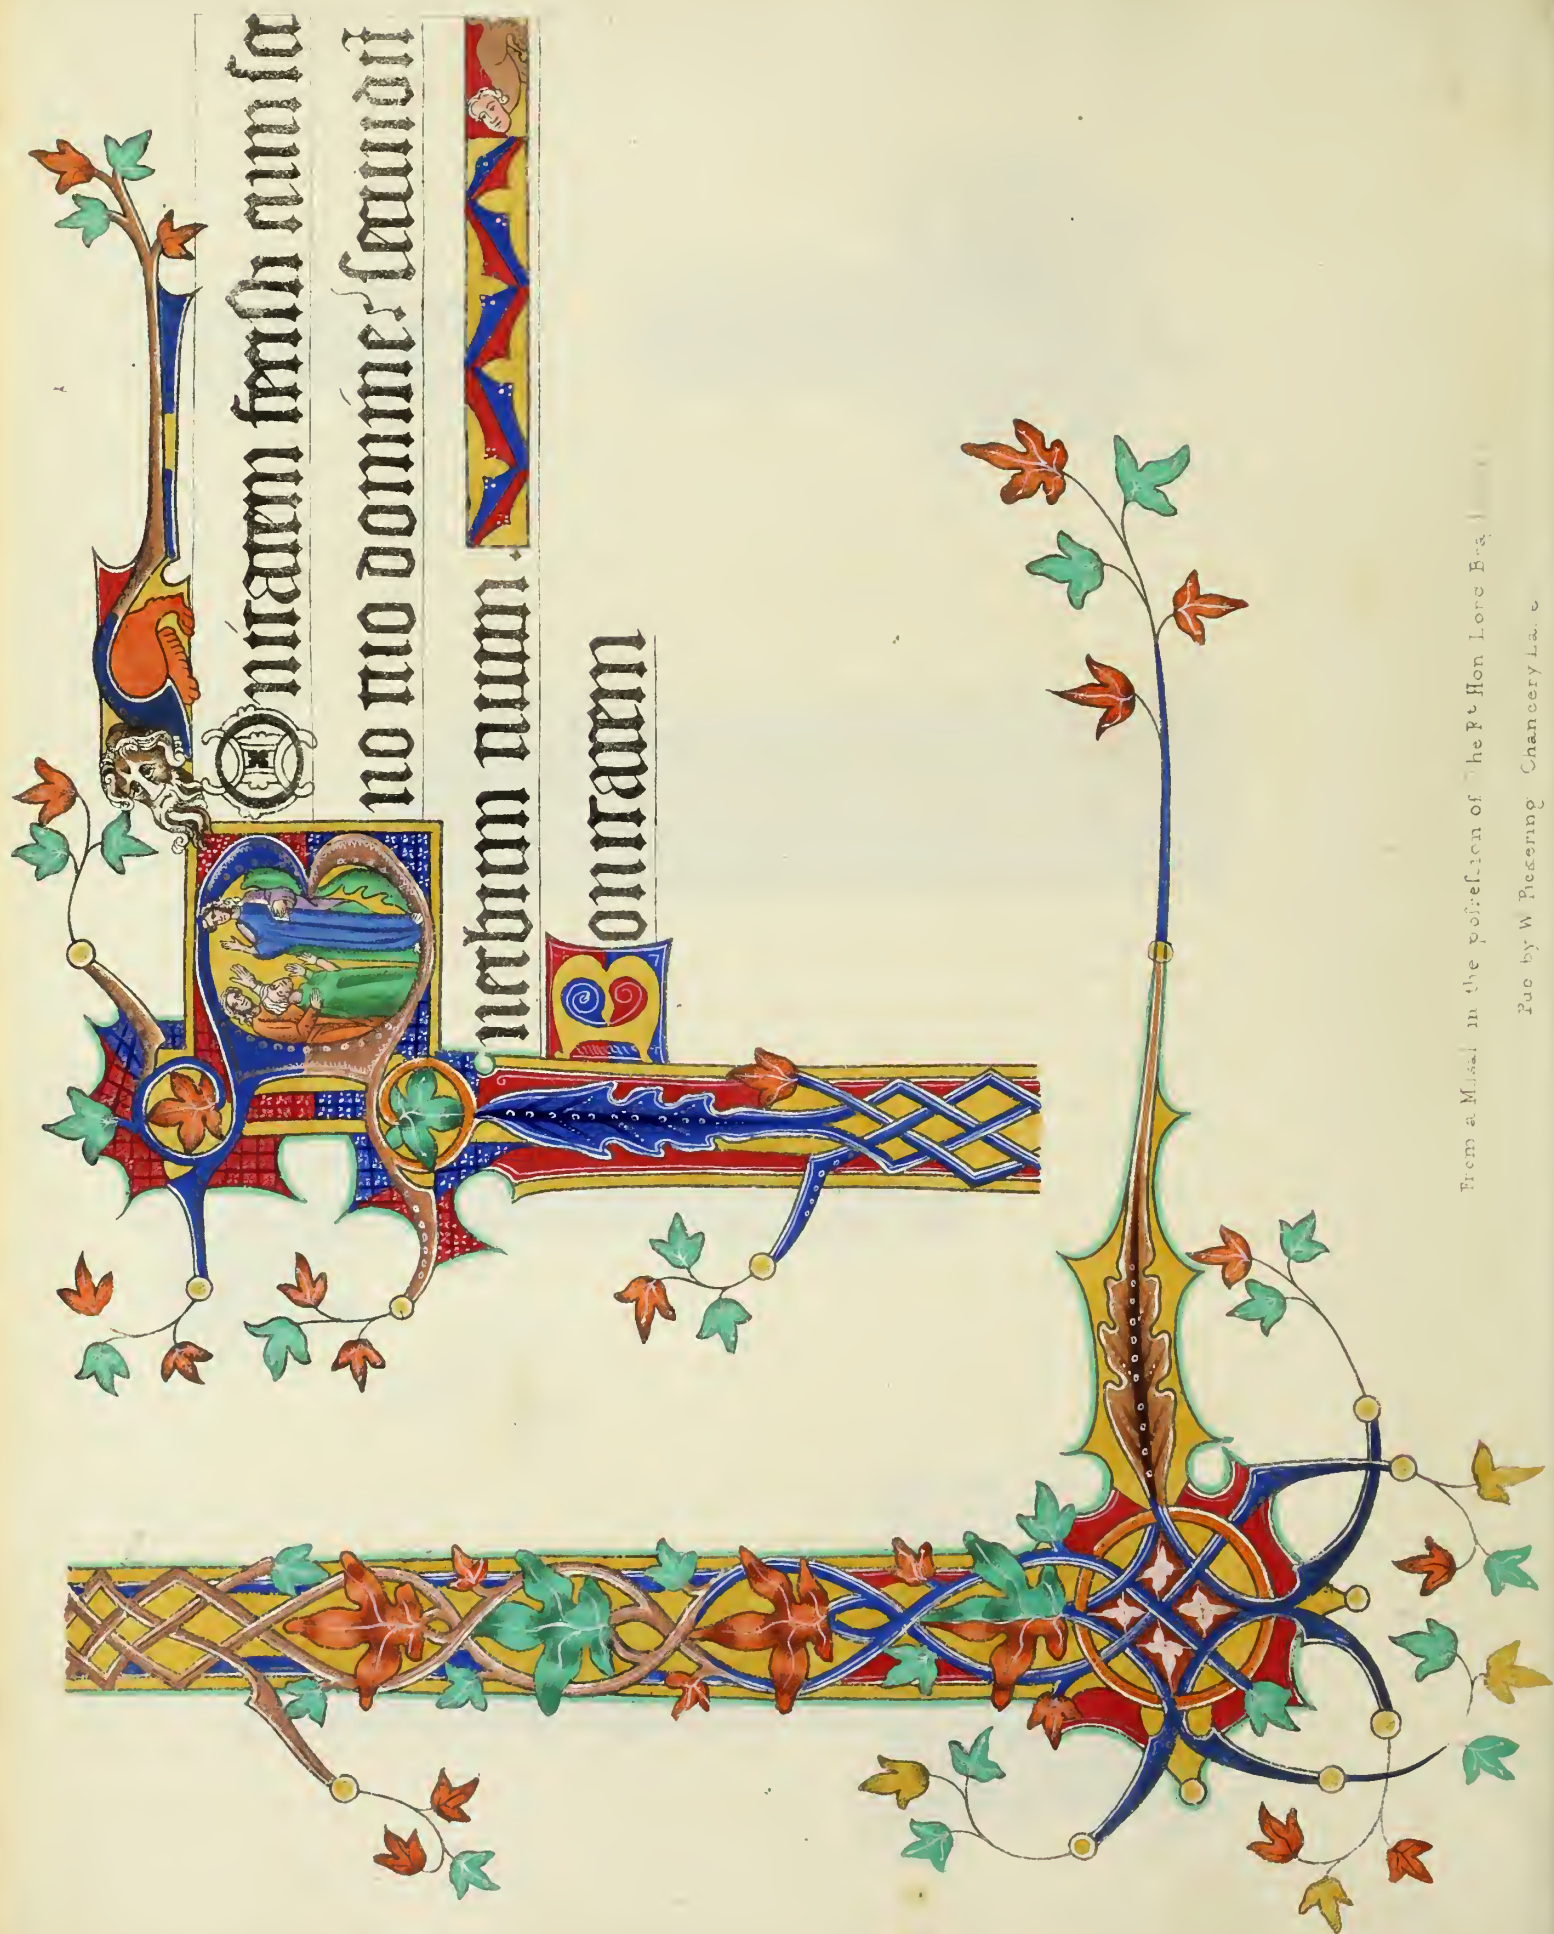 BOnitatem fecisti cum
uo tuo domine secundu
uerbum tuum.
Bonitatem
From a Missal in the poſseſsion of The Rt Hon Lord
Pub by W Pickering Chancery Lane